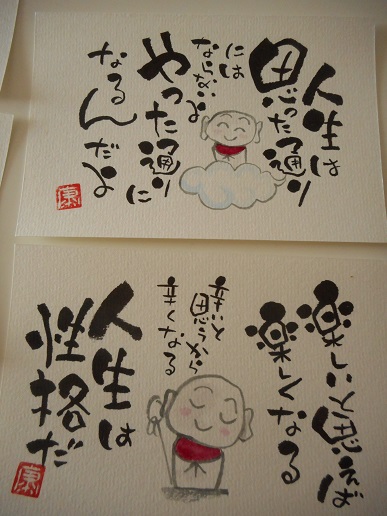 人生は
思った通り
には
ならないよ
やった通りに
なるんだよ
康
楽しいと思えば
楽しくなる
辛いと
思うから
辛くなる
人生は
性格だ
康